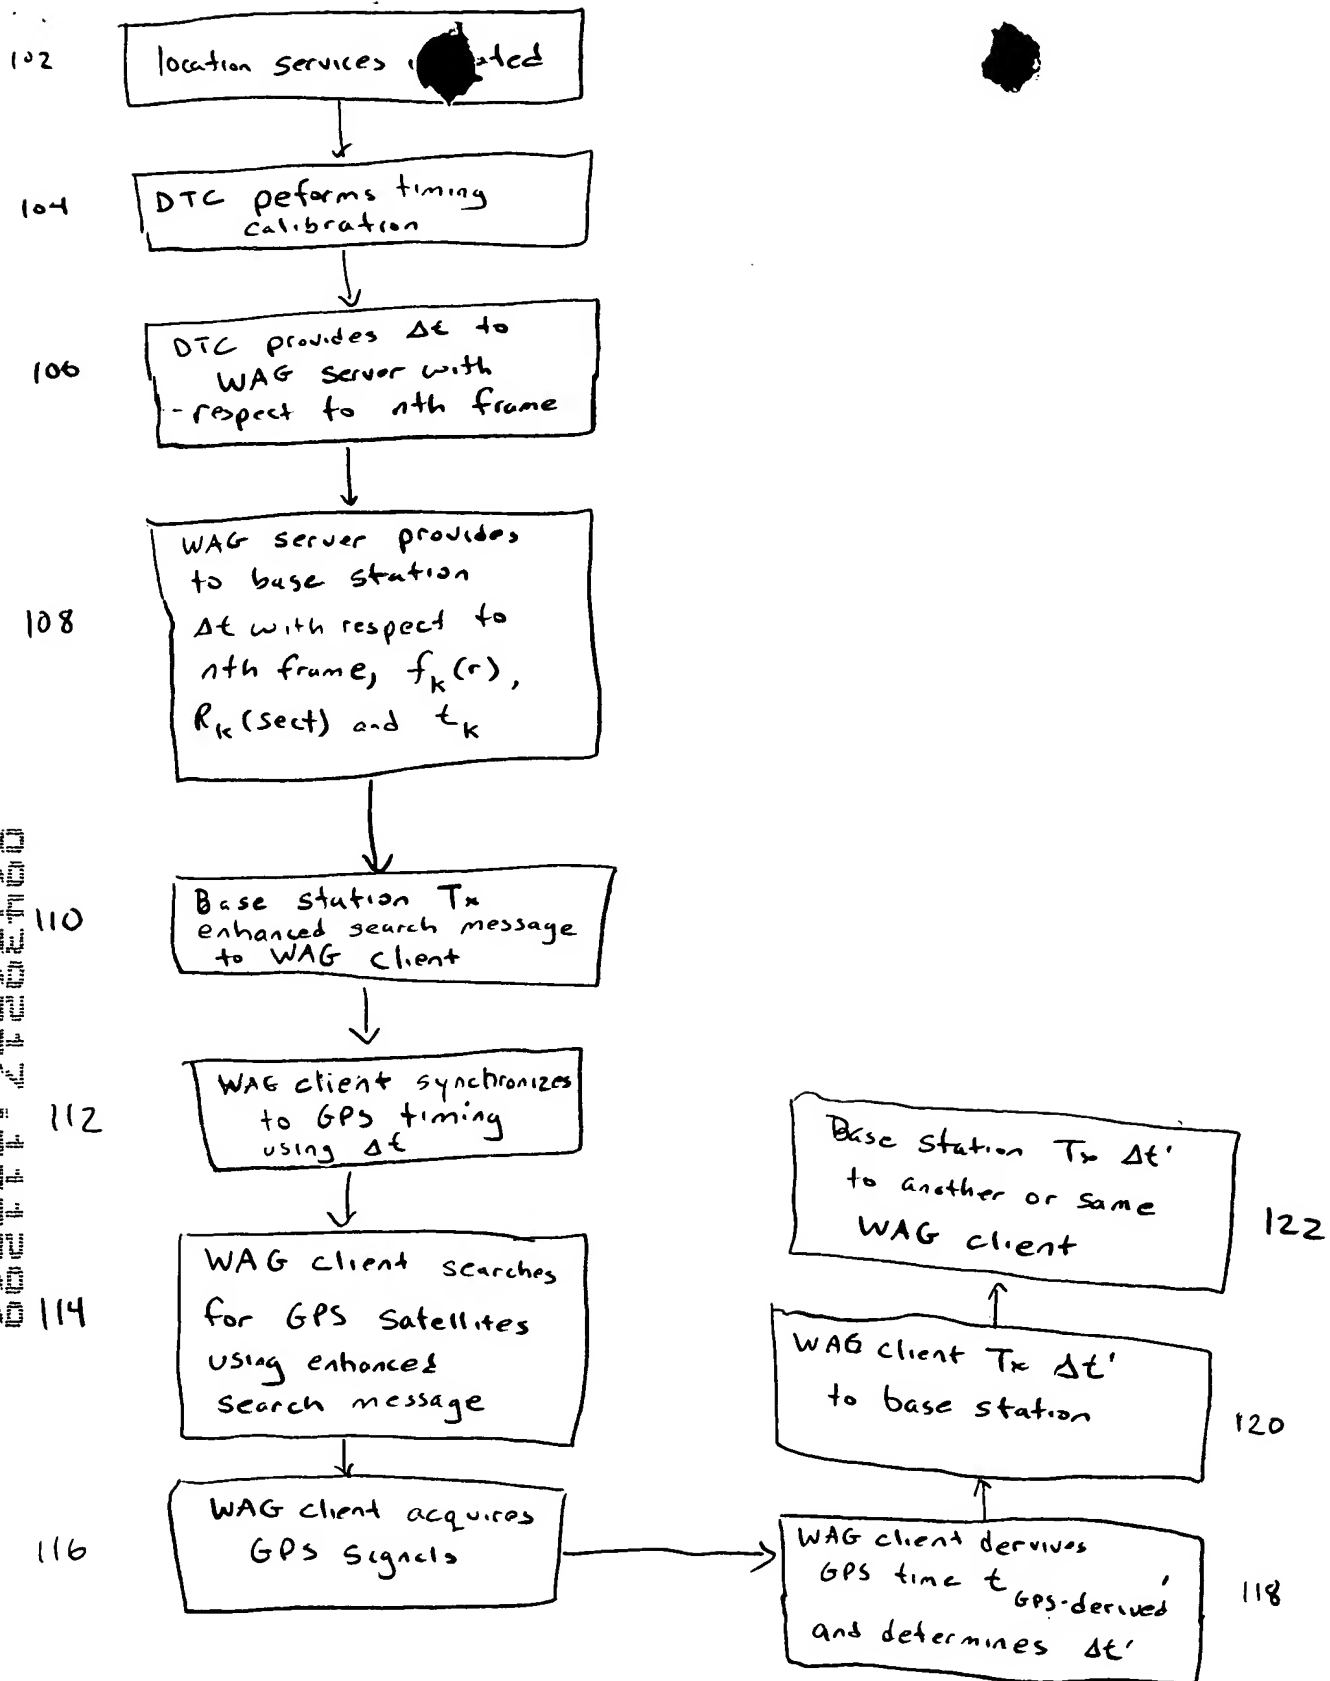 102
location services
104
DTC peforms timing
calibration
106
DTC provides Δt to
WAG server with
respect to nth frame
108
WAG server provides
to base station
Δt with respect to
nth frame, f_k(r),
R_k (sect) and t_k
110
Base station Tx
enhanced search message
to WAG client
112
WAG client synchronizes
to GPS timing
using Δt
114
WAG client searches
for GPS satellites
using enhanced
search message
116
WAG client acquires
GPS signals
WAG client dervives
GPS time t_GPS-derived'
and determines Δt'
118
WAG client Tx Δt'
to base station
120
Base station Tx Δt'
to another or same
WAG client
122